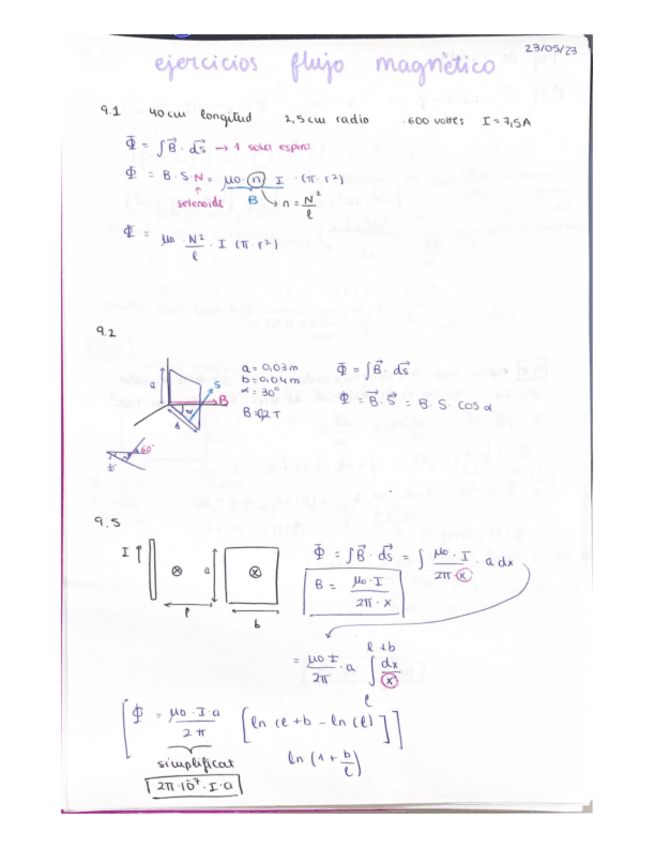 23/05/23
ejercicios flujo magnético
9.1 40 cm longitud 2,5 cm radio · 600 voltes I = 7,5A
Φ = ∫B⃗ · ds⃗ → 1 sola espira
Φ = B · S · N = μ0 · n I · (π · r²)
selenoide B ↳ n = N²/l
Φ = μ0 · N²/l · I (π · r²)
9.2
a = 0,03 m
b = 0,04 m
α = 30°
B = 0,2 T
Φ = ∫B⃗ · ds⃗
Φ = B⃗ · S⃗ = B · S · cos α
a S B α b
60°
9.5
I ↑ ⊗ a ⊗ l b
Φ = ∫B⃗ · ds⃗ = ∫ μ0 · I / 2π · x · a dx
B = μ0 · I / 2π · x
= μ0 I / 2π · a ∫ₗ^(l+b) dx/x
[Φ = μ0 · I · a / 2π [ln (l+b - ln (l)]]
simplificat ln (1 + b/l)
2π·10⁻⁷ · I · a